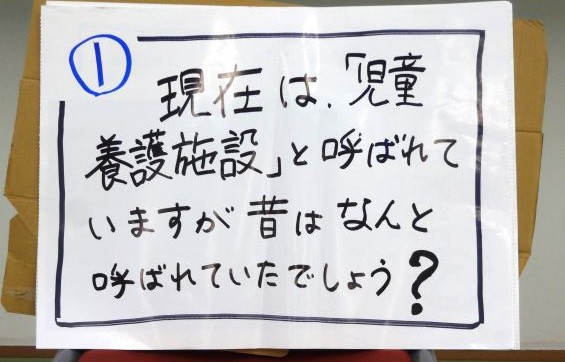 ①
現在は、「児童
養護施設」と呼ばれて
いますが昔はなんと
呼ばれていたでしょう?